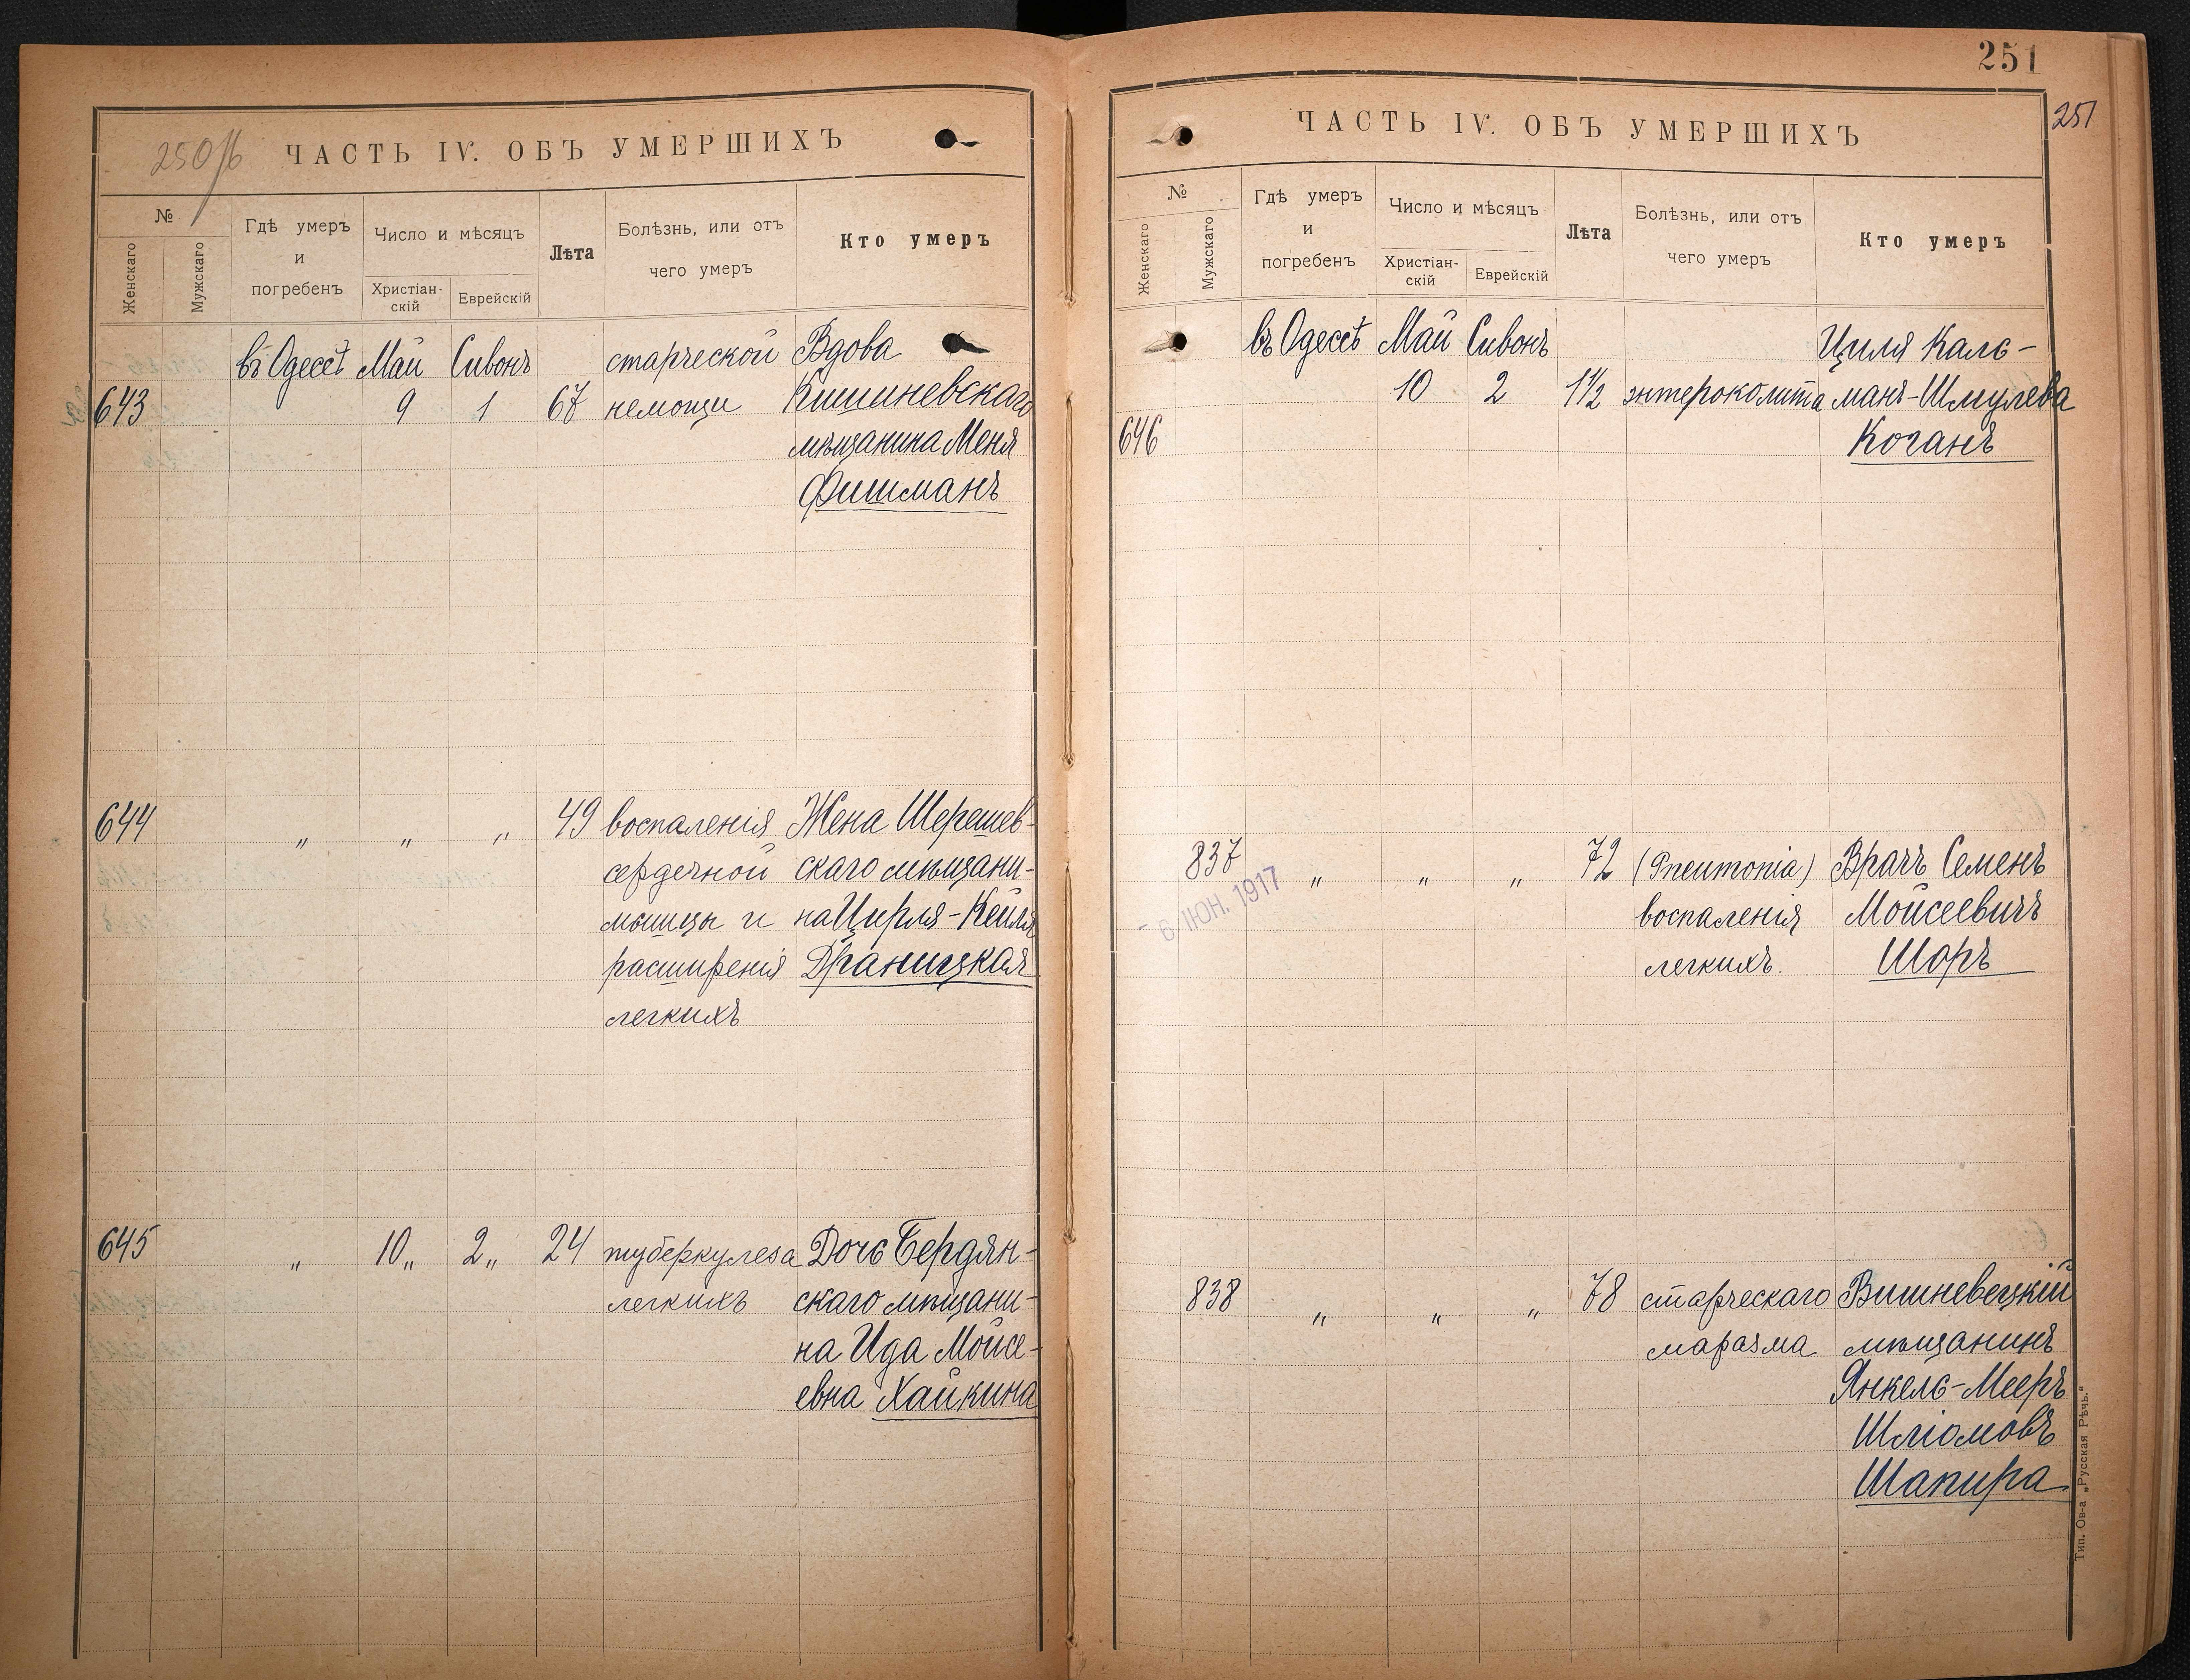 250 об
ЧАСТЬ IV. ОБЪ УМЕРШИХЪ
№
Женскаго
Мужскаго
Гдѣ умеръ
и
погребенъ
Число и мѣсяцъ
Христіан-
скій
Еврейскій
Лѣта
Болѣзнь, или отъ
чего умеръ
Кто умеръ
въ Одессѣ Май Сивонъ старческой Вдова
643 9 1 67 немощи Кишиневскаго
мѣщанина Меня
Фишманъ
644 „ „ „ 49 воспаленія Жена Шерешев-
сердечной скаго мѣщани-
мышцы и на Цирля-Кейля
расширенія Драницкая
легкихъ
645 „ 10 „ 2 „ 24 туберкулеза Дочь Бердян-
легкихъ скаго мѣщани-
на Ида Мойсе-
евна Хайкина
251
251
ЧАСТЬ IV. ОБЪ УМЕРШИХЪ
№
Женскаго
Мужскаго
Гдѣ умеръ
и
погребенъ
Число и мѣсяцъ
Христіан-
скій
Еврейскій
Лѣта
Болѣзнь, или отъ
чего умеръ
Кто умеръ
въ Одессѣ Май Сивонъ Циля Каль-
10 2 1½ энтероколита манъ-Шмулева
646 Коганъ
837 „ „ „ 72 (Pneumonia) Врачъ Семенъ
- 6 ІЮН. 1917
воспаленія Мойсеевичъ
легкихъ. Шоръ
838 „ „ „ 78 старческаго Вишневецкій
маразма мѣщанинъ
Янкель-Мееръ
Шліомовъ
Шапира
Тип. Ов-а „Русская Рѣчь.“